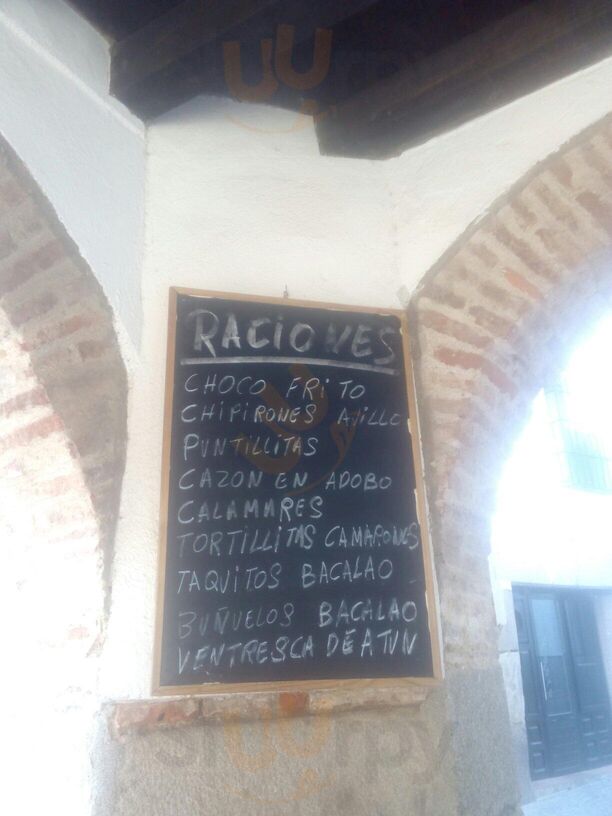 RACIONES
CHOCO FRITO
CHIPIRONES AJILLO
PUNTILLITAS
CAZON EN ADOBO
CALAMARES
TORTILLITAS CAMARONES
TAQUITOS BACALAO
BUÑUELOS BACALAO
VENTRESCA DE ATUN